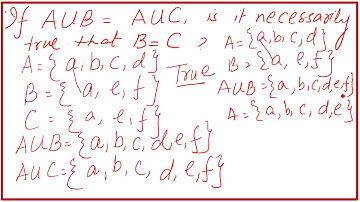 If AUB = AUC, is it necessarily
true that B = C ?
A = {a, b, c, d}
B = {a, e, f}
C = {a, e, f}
AUB = {a, b, c, d, e, f}
AUC = {a, b, c, d, e, f}
True
A = {a, b, c, d}
B = {a, e, f}
AUB = {a, b, c, d, e, f}
A = {a, b, c, d, e}